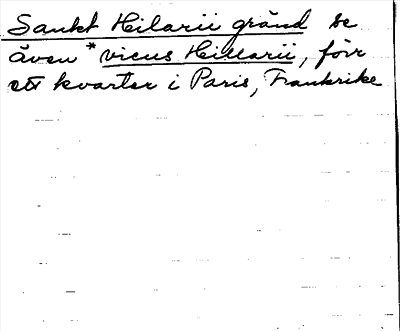 Sankt Hilarii gränd se
även *vicus Hillarii, förr
ett kvarter i Paris, Frankrike